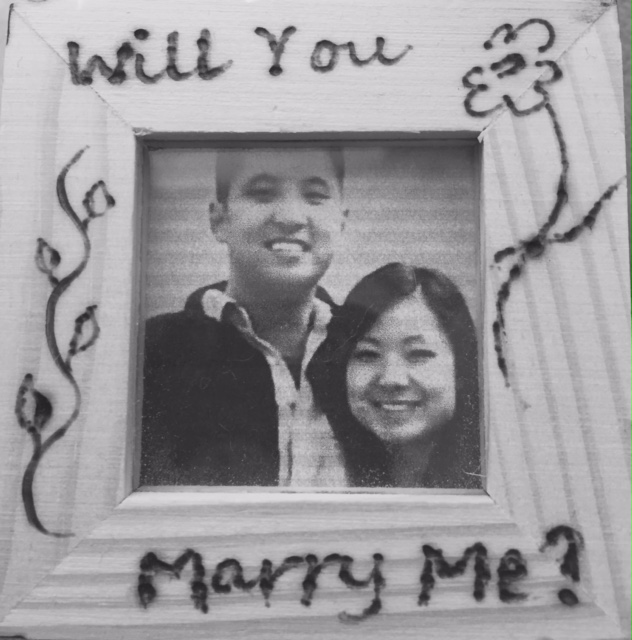 Will You
Marry Me?